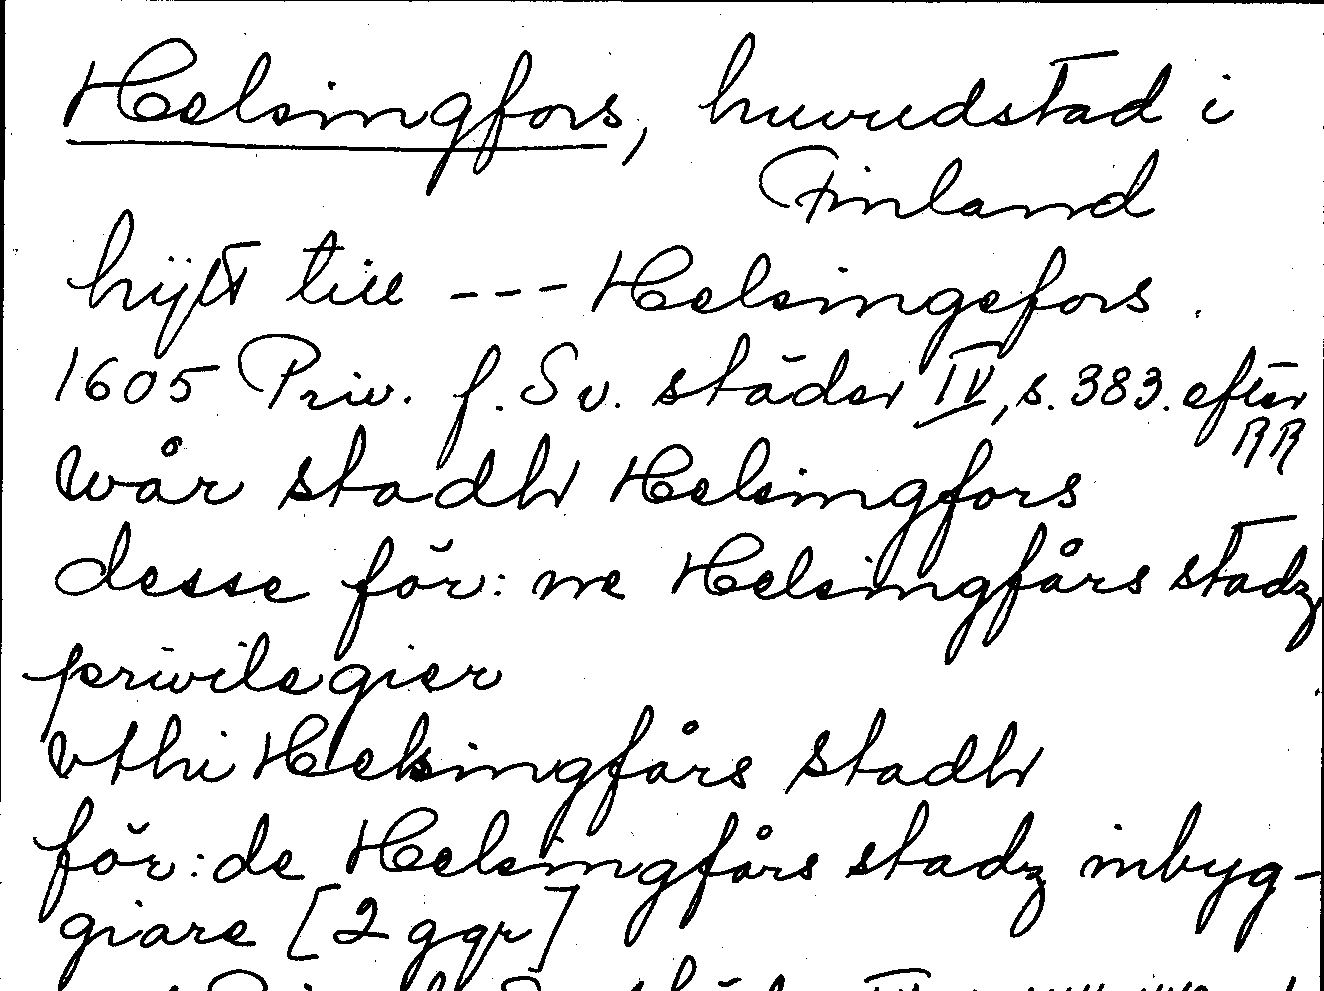 Helsingfors, huvudstad i
Finland
hijtt till --- Helsingefors.
1605 Priv. f. Sv. städer IV, s. 383. efter
RR
wår stadh Helsingfors
desse för:ne Helsingfårs stadz
priwilegier
vthi Helsingfårs stadh
för:de Helsingfårs stadz inbyg-
giare [2 ggr]